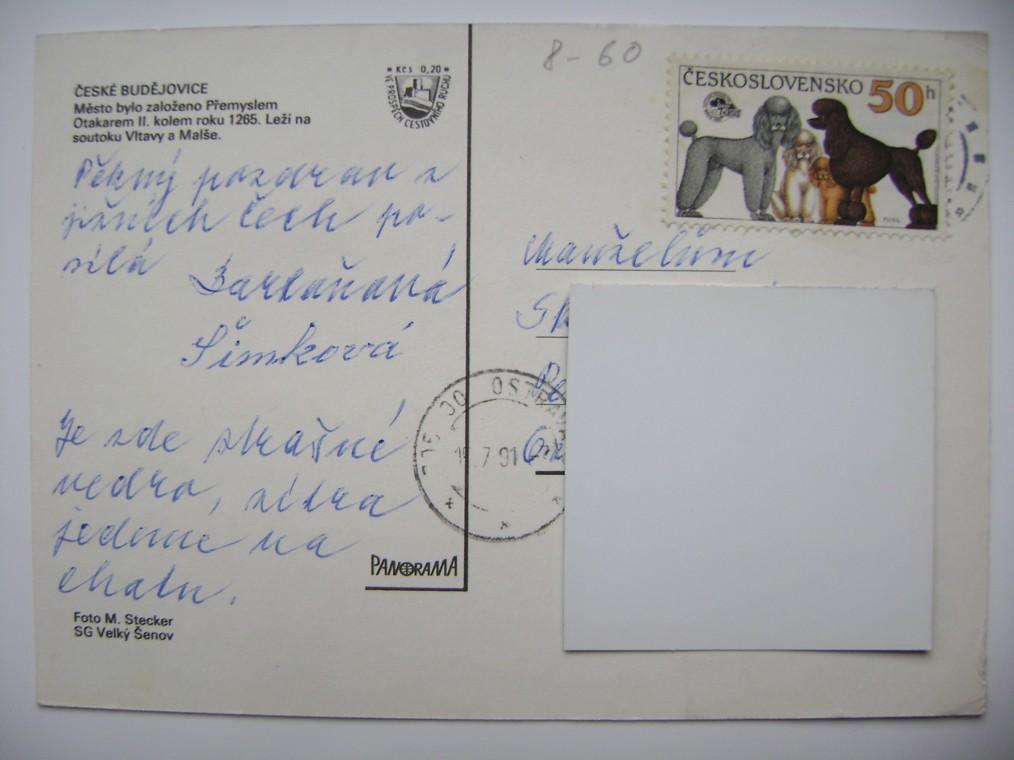 8-60
ČESKÉ BUDĚJOVICE
Město bylo založeno Přemyslem
Otakarem II. kolem roku 1265. Leží na
soutoku Vltavy a Malše.
* Kčs 0,20 *
VE PROSPĚCH CESTOVNÍHO RUCHU
ČESKOSLOVENSKO 50h
Pěkný pozdrav z
jižních Čech po-
sílá
Šimková
Je zde strašné
vedro, zítra
jedeme na
chatu.
Manželům
OSTRA
7 91
PANORAMA
Foto M. Stecker
SG Velký Šenov